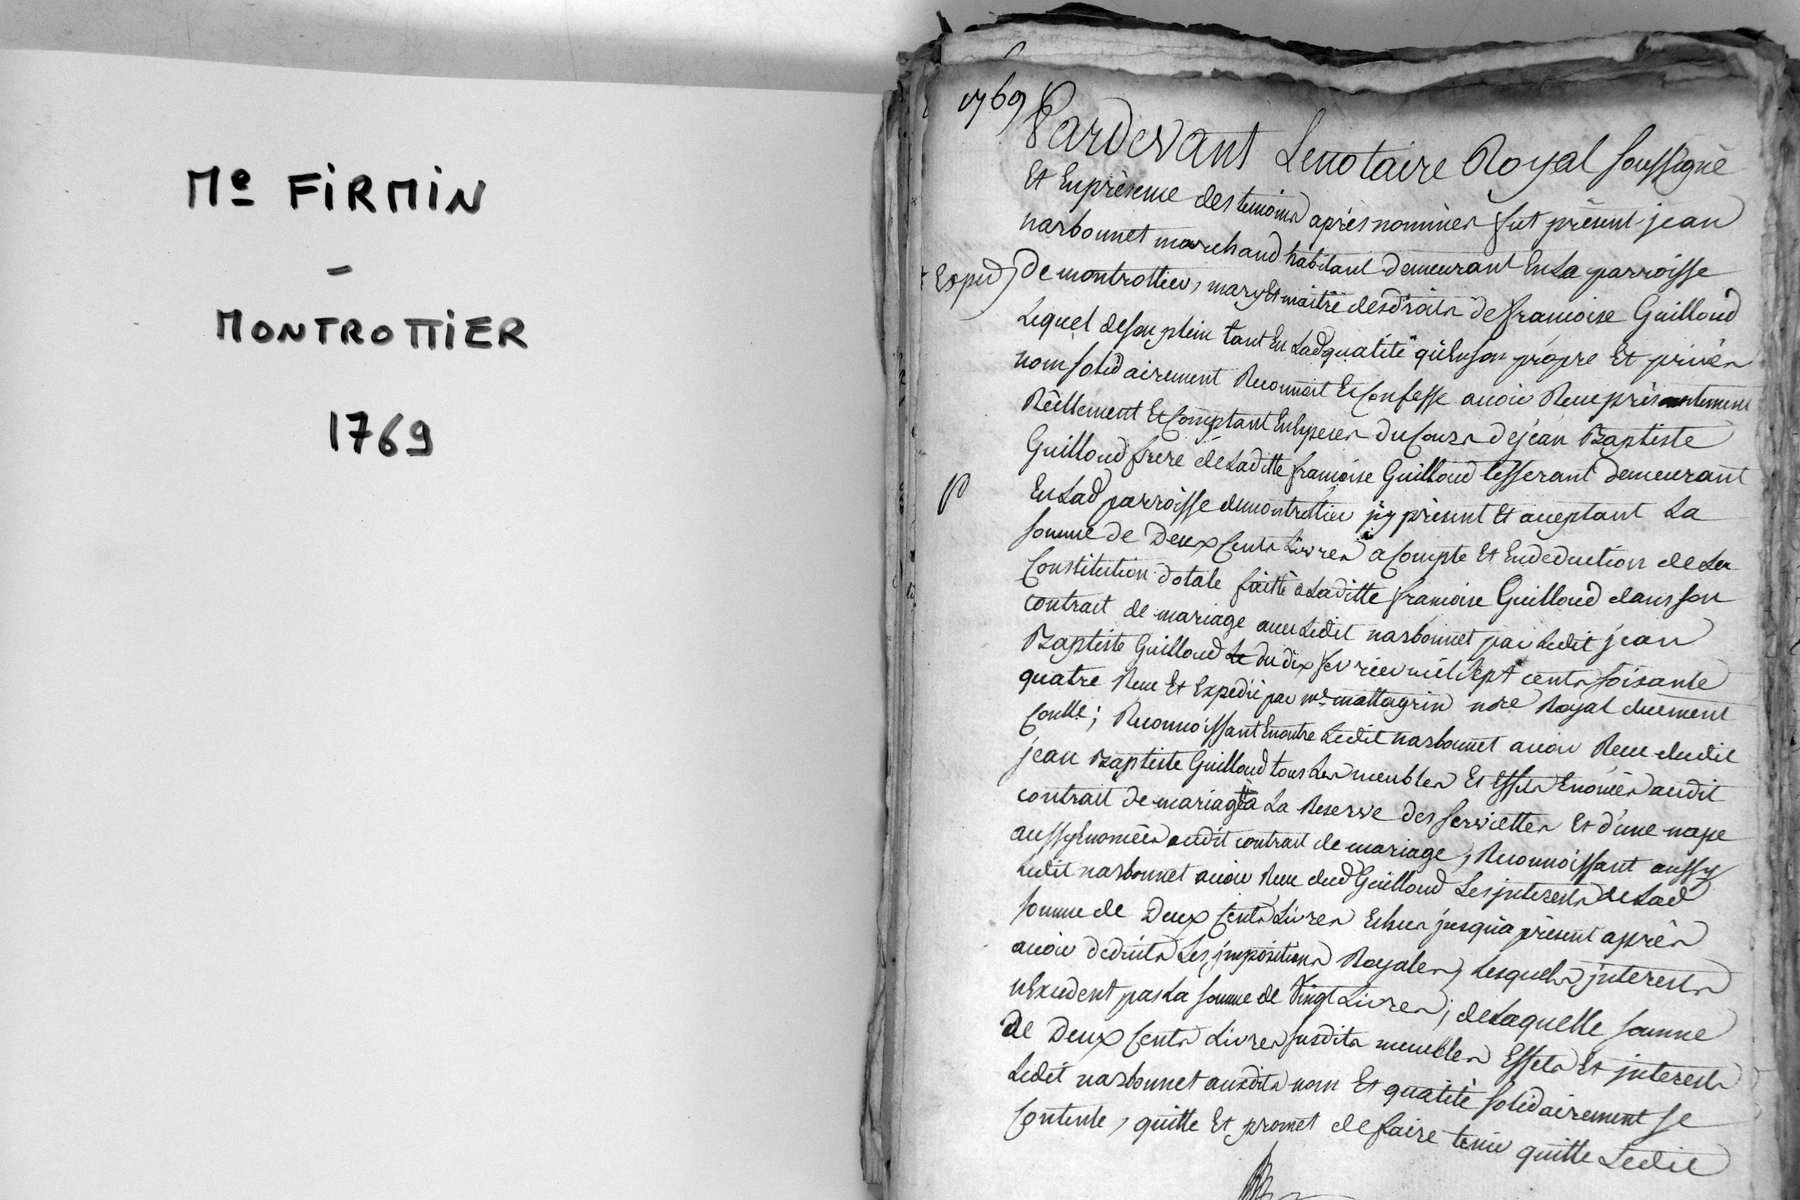 Me FIRMIN
-
MONTROTTIER
1769
1769
Pardevant Lenotaire Royal soussigné
Et Enprésence des temoins après nommées fut présent jean
narbonnet marchand habitant demeurant En La parroisse
Exped
de montrottier, mary Et maitre desdroits de francoise Guilloud
Lequel de son plein tant En Ladqualité qu'Enson propre Et privés
nom solidairement Reconnoit Et Confesse avoir Receu présentement
Réellement Et Comptant En Especes du Cours de jean Baptiste
Guilloud frere de Laditte francoise Guilloud tesserant demeurant
En Lad parroisse demontrottier jcy présent Et aceptant La
somme de Deux Cents Livres a Compte Et En deduction de La
Constitution dotale faitte a Laditte francoise Guilloud dans son
contrait de mariage avec Ledit narbonnet par Ledit jean
Baptiste Guilloud du dix fevrier mil sept cents soisante
quatre Receu Et Expedié par me mattagrin nore Royal duement
Conllé; Reconnoissant Enoutre Ledit narbonnet avoir Receu dudit
jean Baptiste Guilloud tous Les meubles Et Effets Enomés audit
contrait de mariage à La Reserve des serviettes Et d'une nape
aussy Enomées audit contrait de mariage, Reconnoissant aussy
Ledit narbonnet avoir Receu dud Guilloud Les jnterests de Lad
somme de Deux Cents Livres Echus jusqu'a présent après
avoir deduits Les jmpositions Royales, Lesquels jnterests
nExcedent pas La somme de Vingt Livres; de Laquelle somme
de Deux Cents Livres susdits meubles Effets Et jnterests
Ledit narbonnet auxdits nom Et qualité solidairement se
Contente, quitte Et promet de faire tenir quitte Ledit